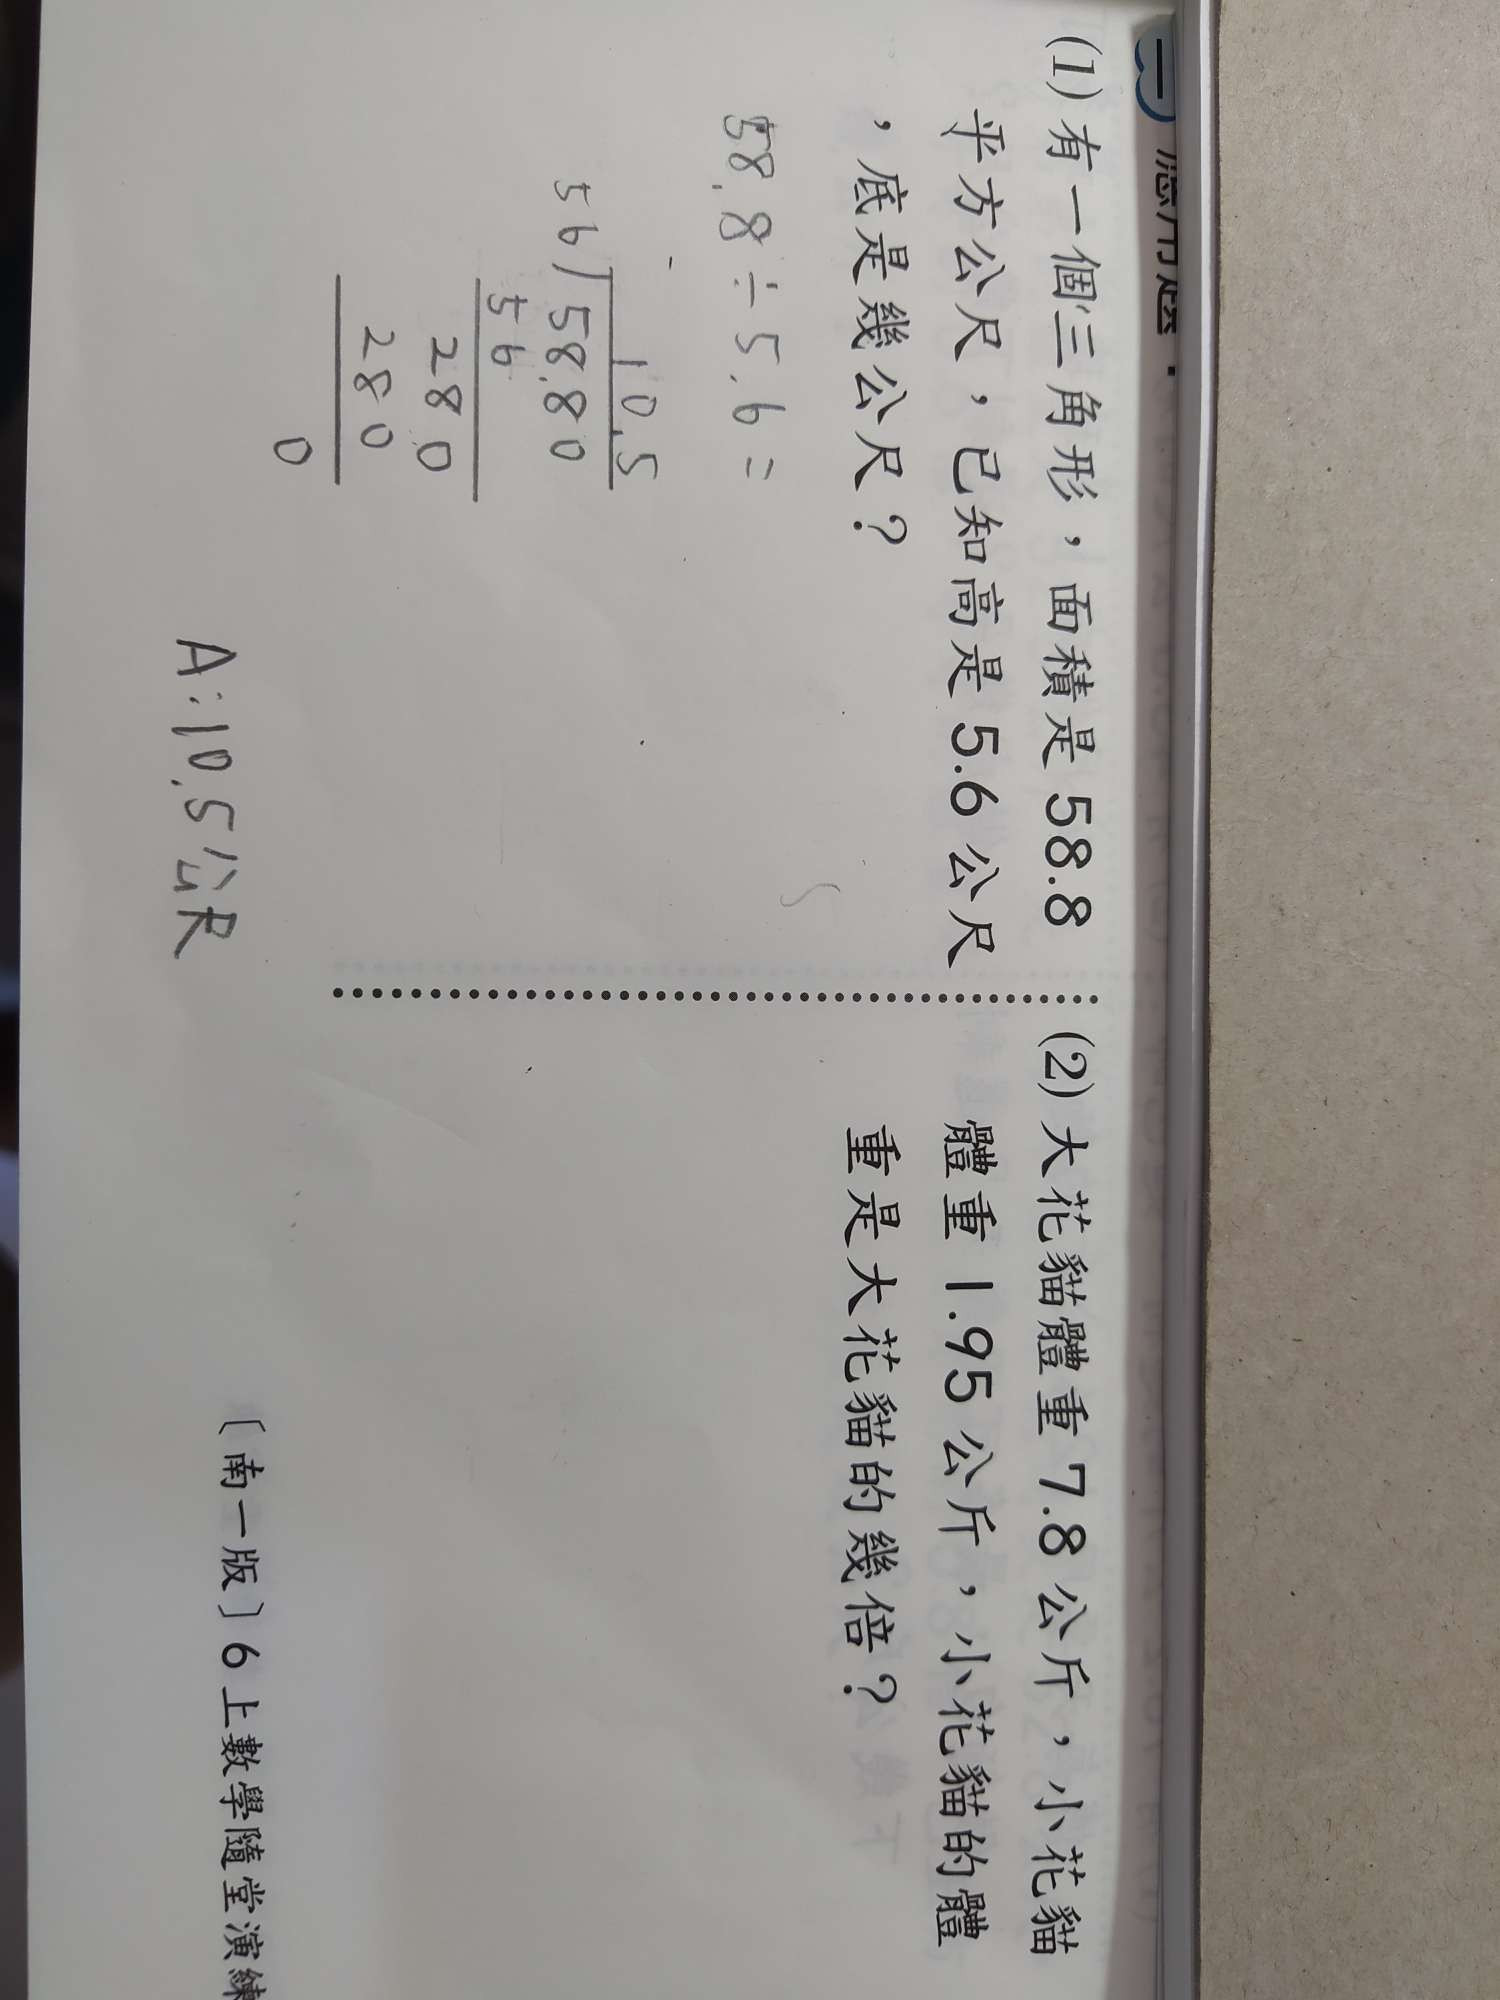 一 應用題：
(1) 有一個三角形，面積是 58.8
平方公尺，已知高是 5.6 公尺
，底是幾公尺？
58.8÷5.6=
10.5
56)58.80
56
280
280
0
A:10.5公尺
(2) 大花貓體重 7.8 公斤，小花貓
體重 1.95 公斤，小花貓的體
重是大花貓的幾倍？
〔南一版〕6 上數學隨堂演練